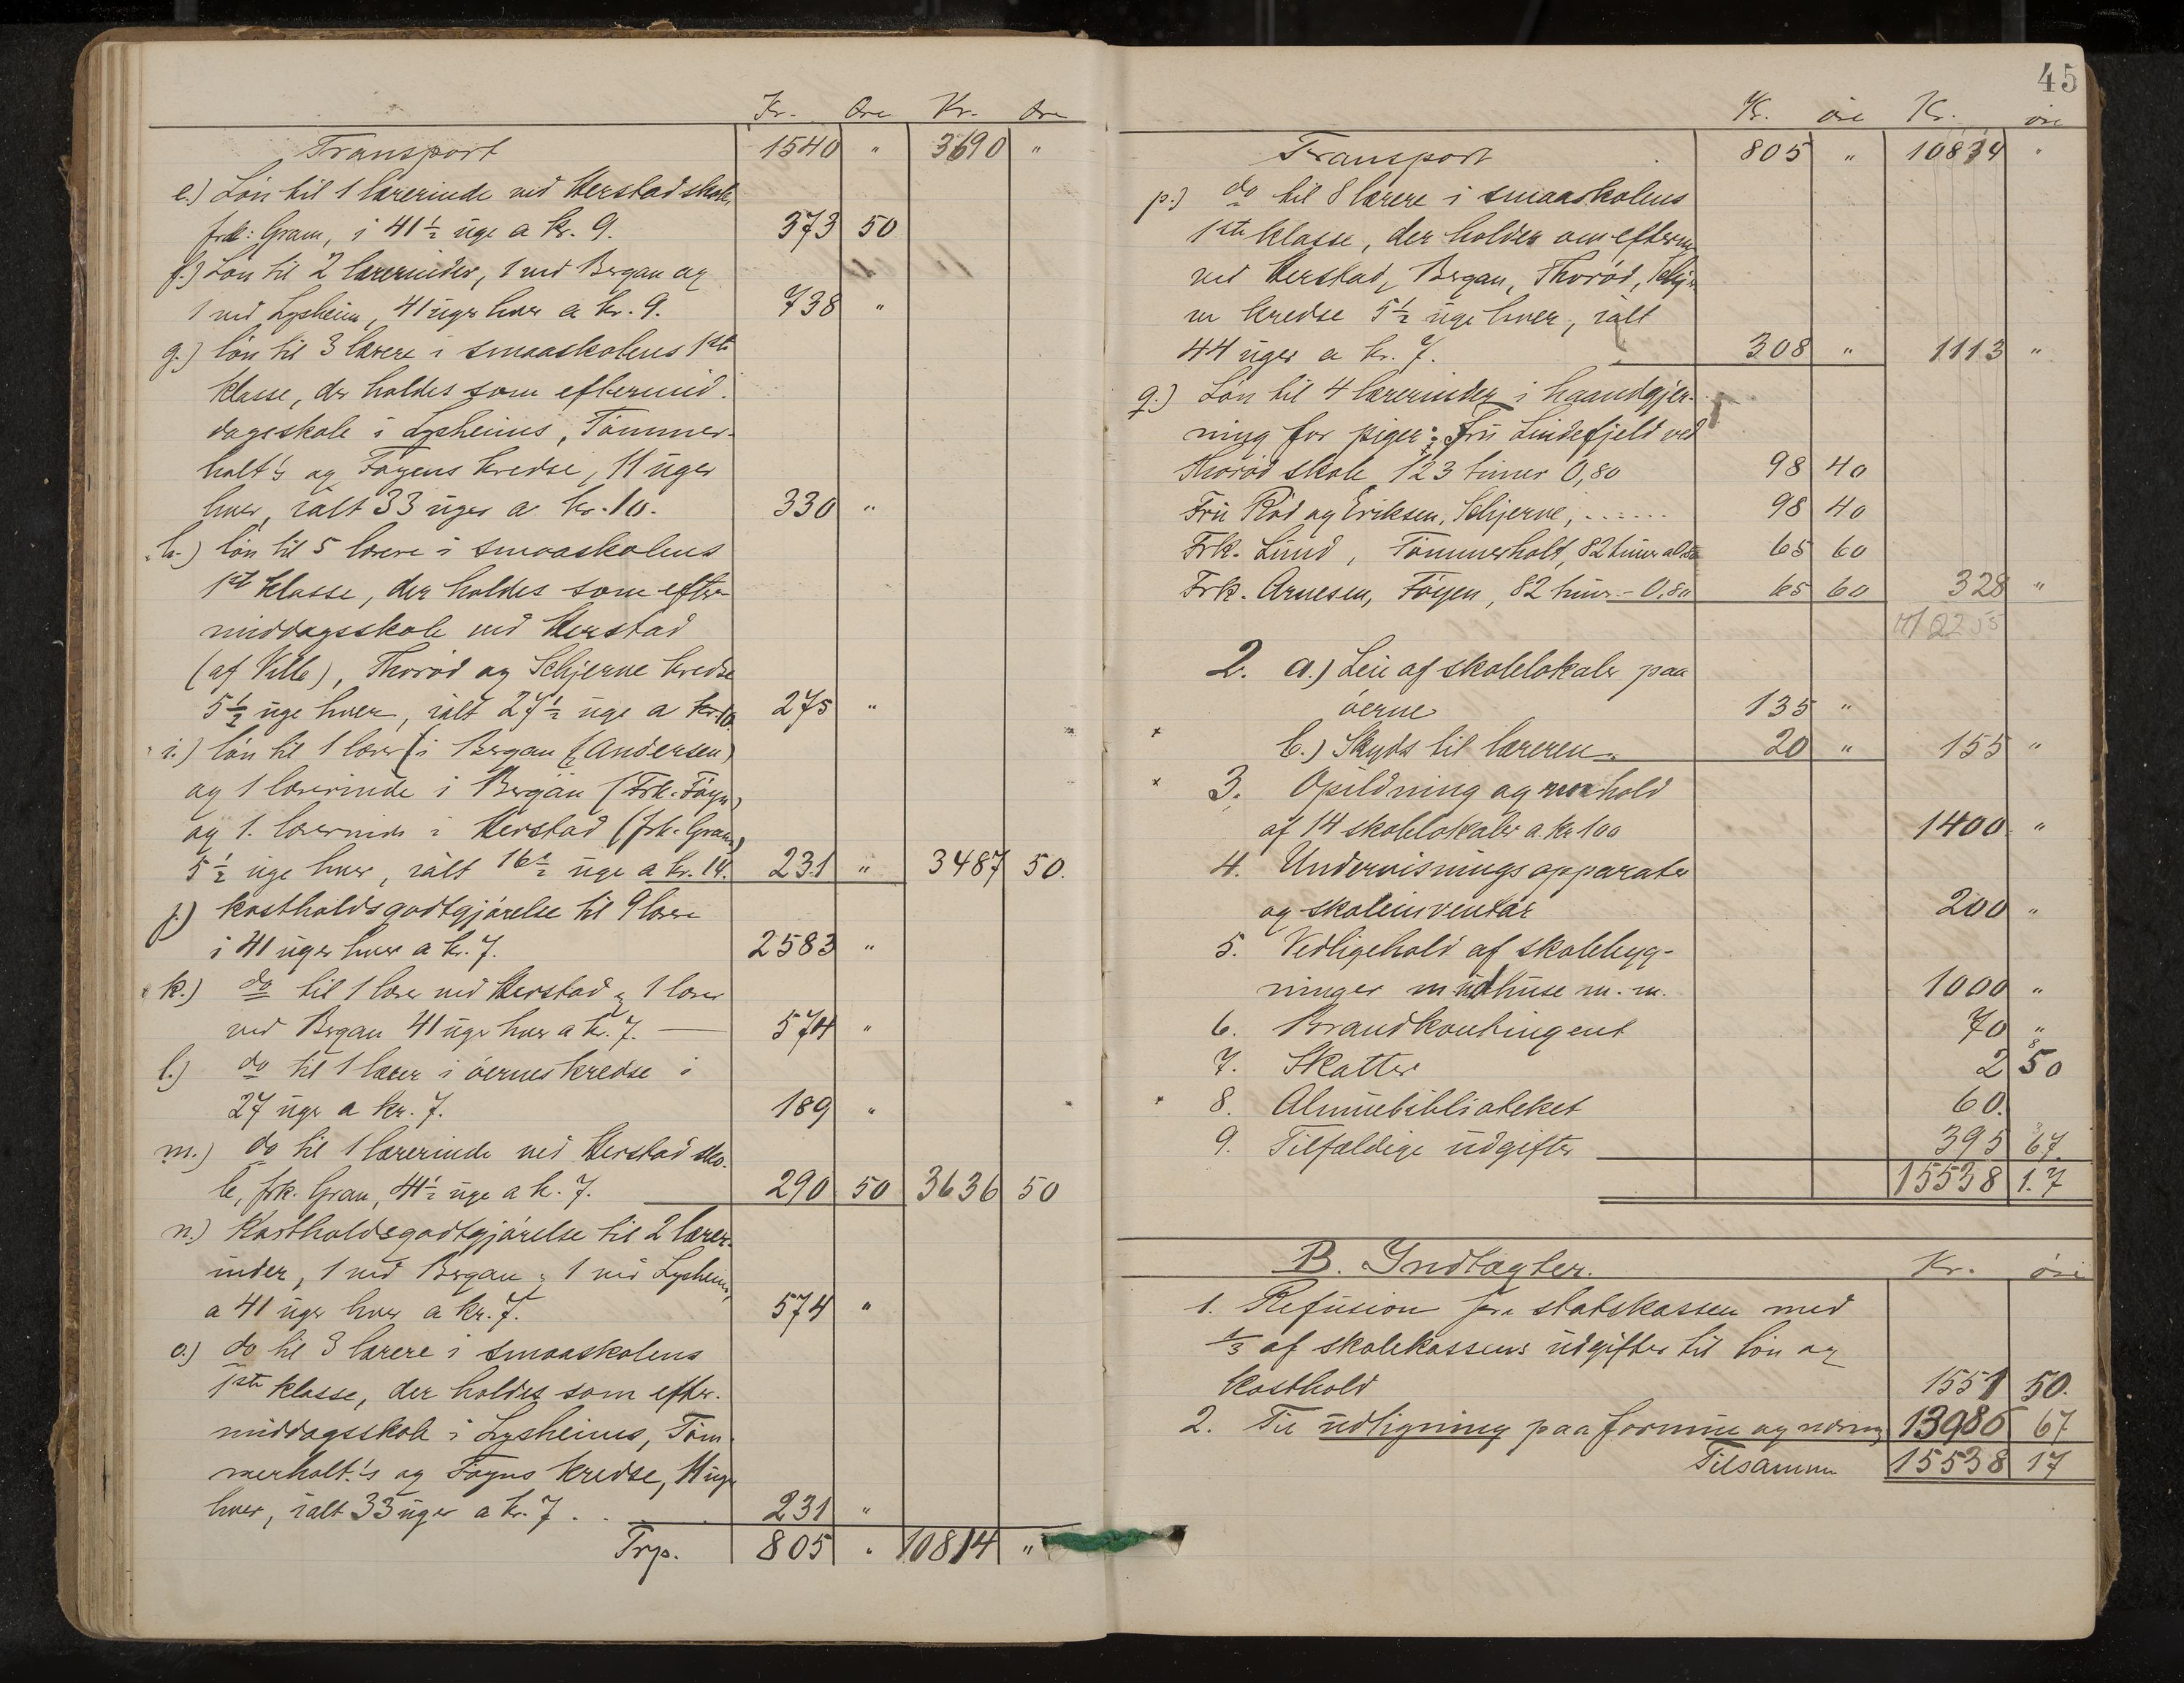 Kr. Øre Kr. Øre
Transport 1540 " 3690 "
e.) Løn til 1 lærerinde ved Herstad skole,
frk: Gram, i 41 1/2 uge a kr. 9. 373 50
f.) Løn til 2 lærerinder, 1 ved Bergan og
1 ved Lysheim, 41 uger hver a kr. 9. 738 "
g.) løn til 3 lærere i smaaskolens 1ste
klasse, der holdes som eftermid-
dagsskole i Lysheims, Tømmer-
holt's og Føyens kredse, 11 uger
hver, ialt 33 uger a kr. 10. 330 "
h.) løn til 5 lærere i smaaskolens
1ste klasse, der holdes som efter-
middagsskole ved Herstad
(af Ville), Thorød og Schjerne kredse
5 1/2 uge hver, ialt 27 1/2 uge a kr. 10. 275 "
i.) løn til 1 lærer (i Bergan (Andersen)
og 1 lærerinde i Bergan (Frk. Føyn)
og 1. lærerinde i Herstad (frk. Gram)
5 1/2 uge hver, ialt 16 1/2 uge a kr. 14. 231 " 3487 50.
j.) kostholdsgodtgjørelse til 9 lærere
i 41 uger hver a kr. 7. 2583 "
k.) do til 1 lærer ved Herstad & 1 lærer
ved Bergan 41 uge hver a kr. 7. — 574 "
l.) do til 1 lærer i øernes kredse i
27 uge a kr. 7. 189 "
m.) do til 1 lærerinde ved Herstad sko-
le, frk. Gram, 41 1/2 uge a kr. 7. 290 50 3636 50
n.) Kostholdsgodtgjørelse til 2 lærer-
inder, 1 ved Bergan & 1 ved Lysheim,
a 41 uger hver a kr. 7. 574 "
o.) do til 3 lærere i smaaskolens
1ste klasse, der holdes som efter-
middagsskole i Lysheims, Tøm-
merholt's og Føyns kredse, 11 uge
hver, ialt 33 uger a kr. 7 . . 231 "
Trp. 805 " 10814 "
45
Kr. øre Kr. øre
Transport 805 " 10814 "
p.) do til 8 lærere i smaaskolens
1ste klasse, der holdes om efterm.
ved Herstad, Bergan, Thorød, Schjer-
ne kredse 5 1/2 uge hver, ialt
44 uger a kr. 7. 308 " 1113 "
q.) Løn til 4 lærerinder i haandgjer-
ning for piger: Fru Lindefjeld ved
Thorød skole 123 timer 0,80 98 40
Fru Rød og Eriksen, Schjerne, ...... 98 40
Frk. Lund, Tømmerholt, 82 timer a 0,80 65 60
Frk. Arnesen, Føyen, 82 timer - 0,80 65 60 328 "
2. a.) Leie af skolelokaler paa
øerne 135 "
b.) Skyds til læreren 20 " 155 "
3. Opildning og renhold
af 14 skolelokaler a kr 100 1400 "
4. Undervisningsapparater
og skoleinventar 200 "
5. Vedligehold af skolebyg-
ninger m udhuse m. m. 1000 "
6. Brandkontingent 70 "
7. Skatter 2 50
8. Almuebiblioteket 60.
9. Tilfældige udgifter 395 67.
15538 17
B. Indtægter. Kr. øre
1. Refusion fra statskassen med
1/3 af skolekassens udgifter til løn og
kosthold 1551 50.
2. Til udligning paa formue og næring 13986 67
Tilsammen 15538 17